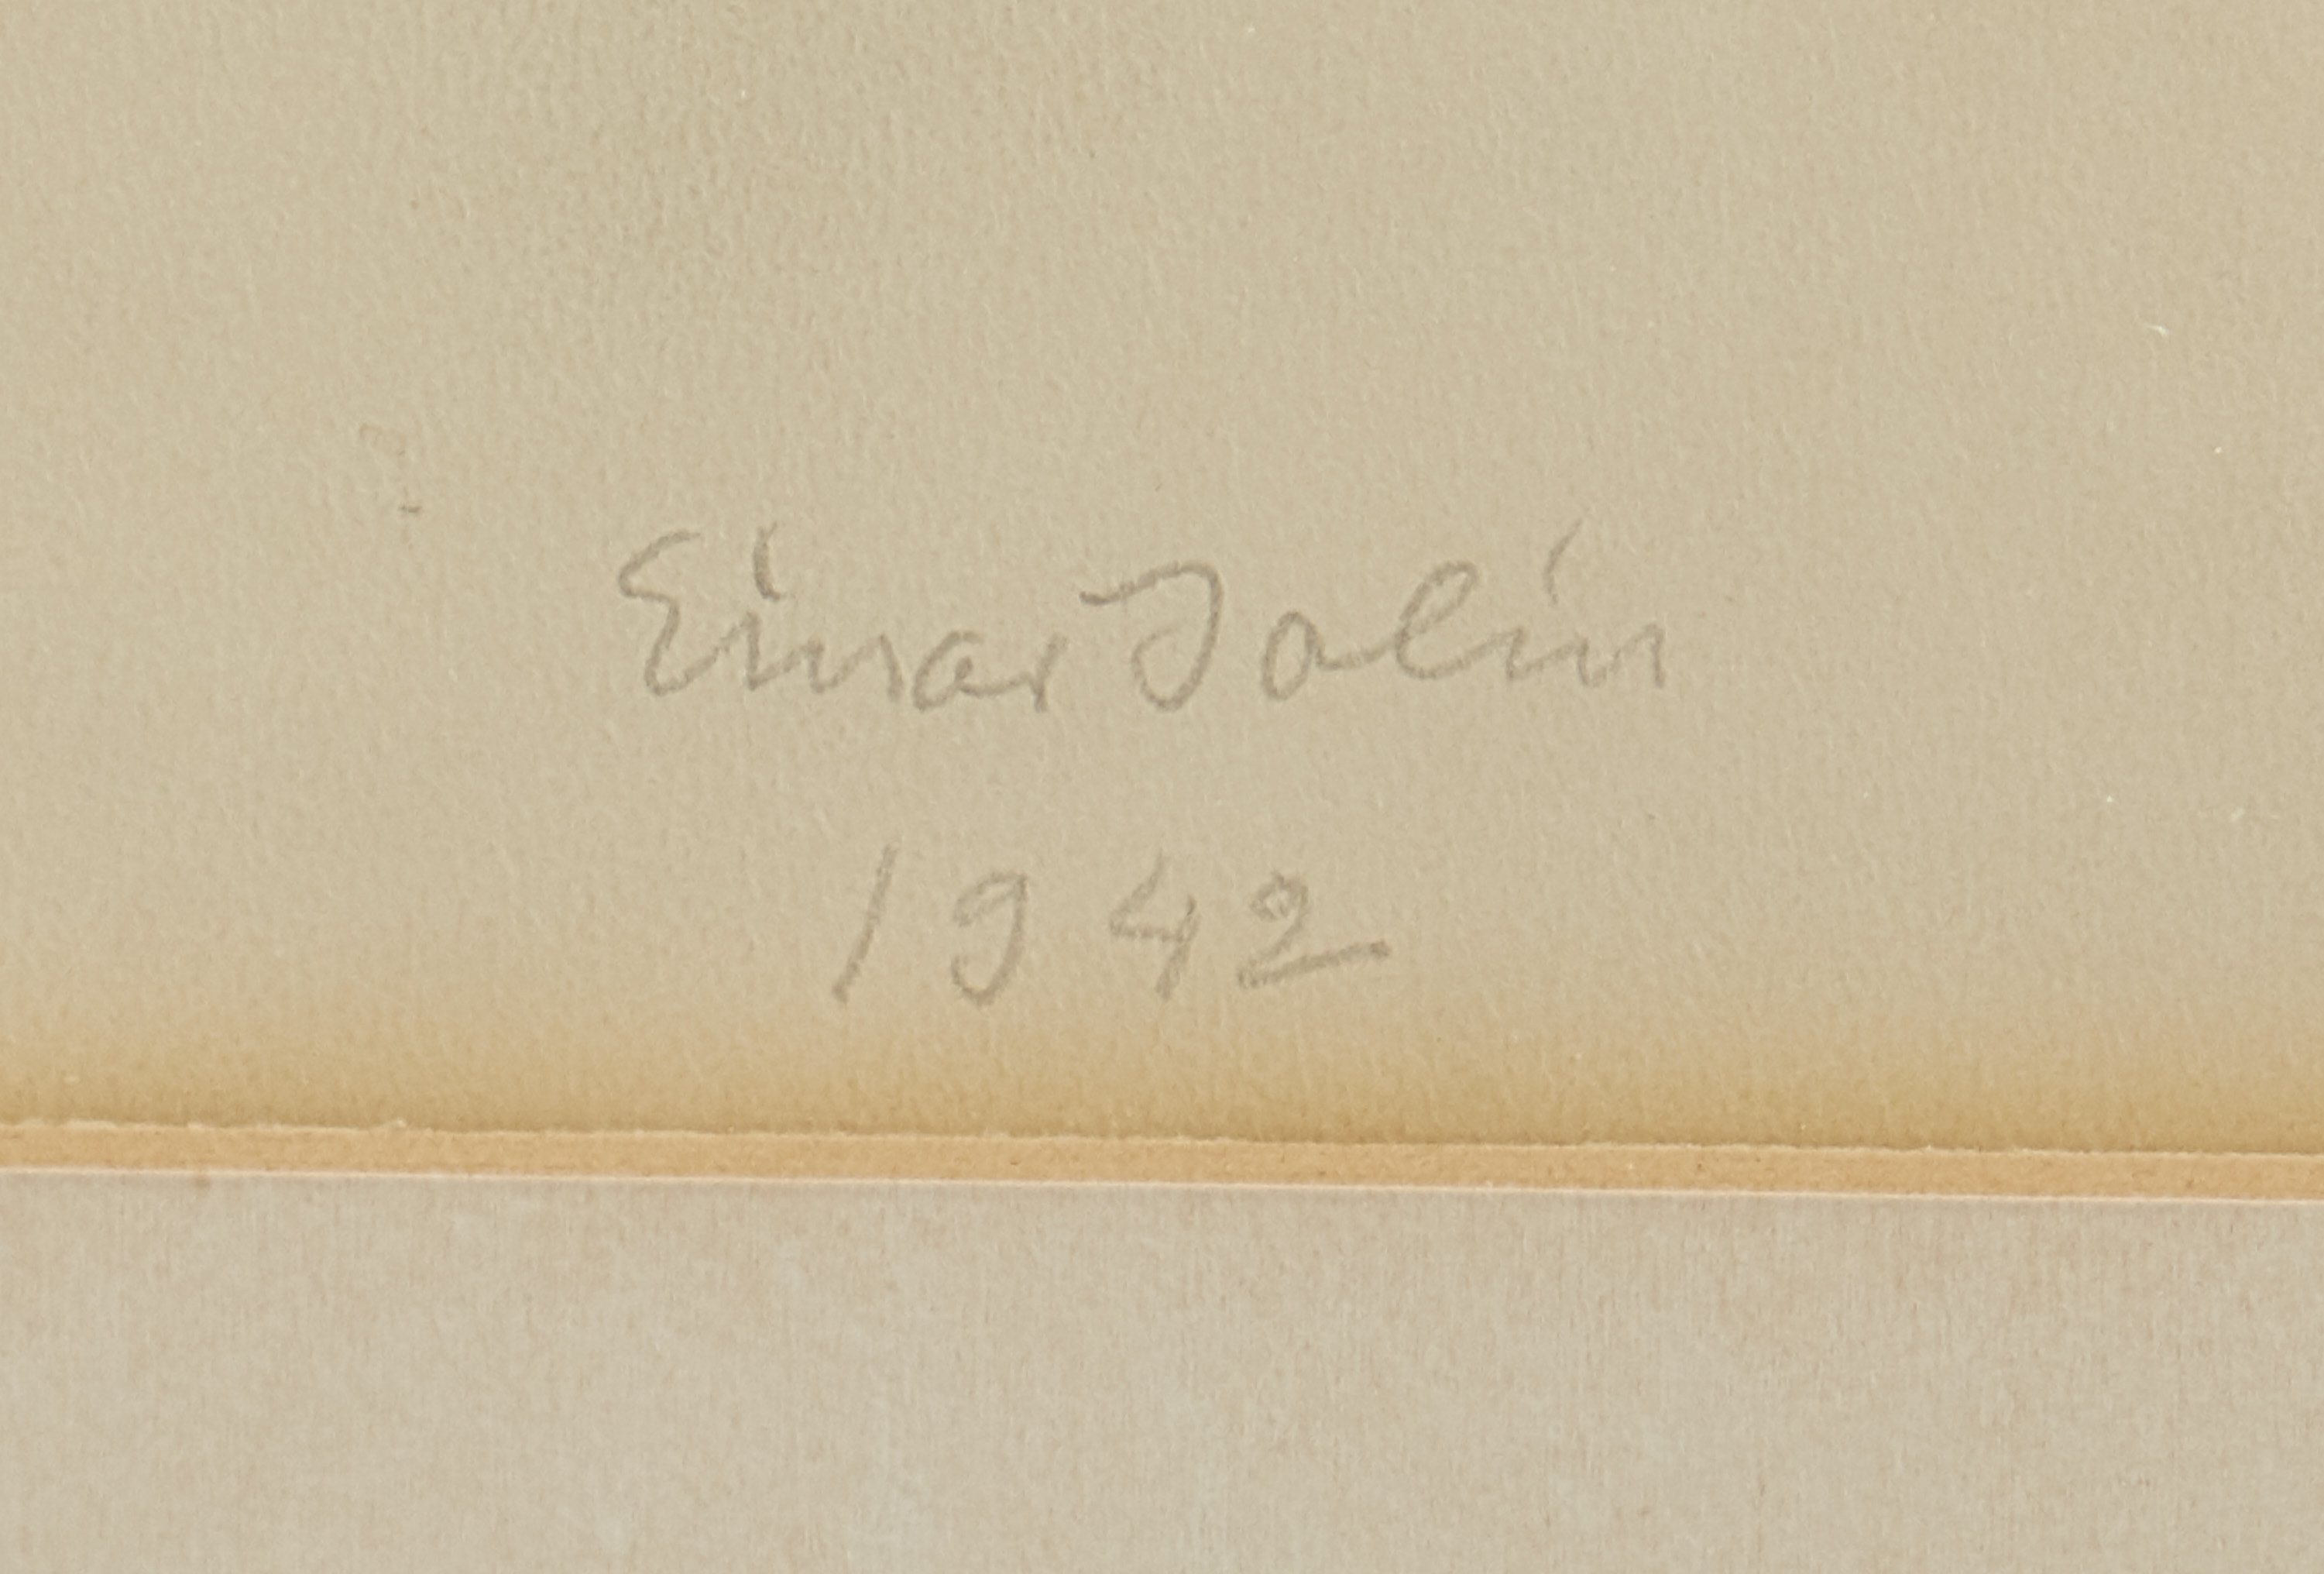 Einar Jolin
1942